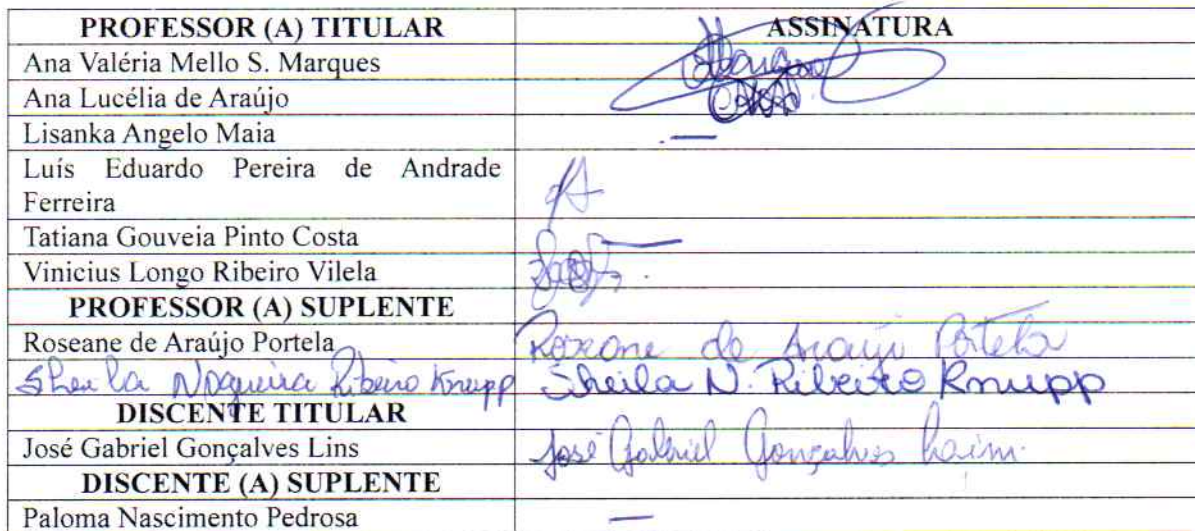 PROFESSOR (A) TITULAR ASSINATURA
Ana Valéria Mello S. Marques
Ana Lucélia de Araújo
Lisanka Angelo Maia —
Luís Eduardo Pereira de Andrade
Ferreira
Tatiana Gouveia Pinto Costa —
Vinicius Longo Ribeiro Vilela
PROFESSOR (A) SUPLENTE
Roseane de Araújo Portela Roseane de Araújo Portela
Sheila Nogueira Ribeiro Knupp Sheila N. Ribeiro Knupp
DISCENTE TITULAR
José Gabriel Gonçalves Lins José Gabriel Gonçalves
DISCENTE (A) SUPLENTE
Paloma Nascimento Pedrosa —